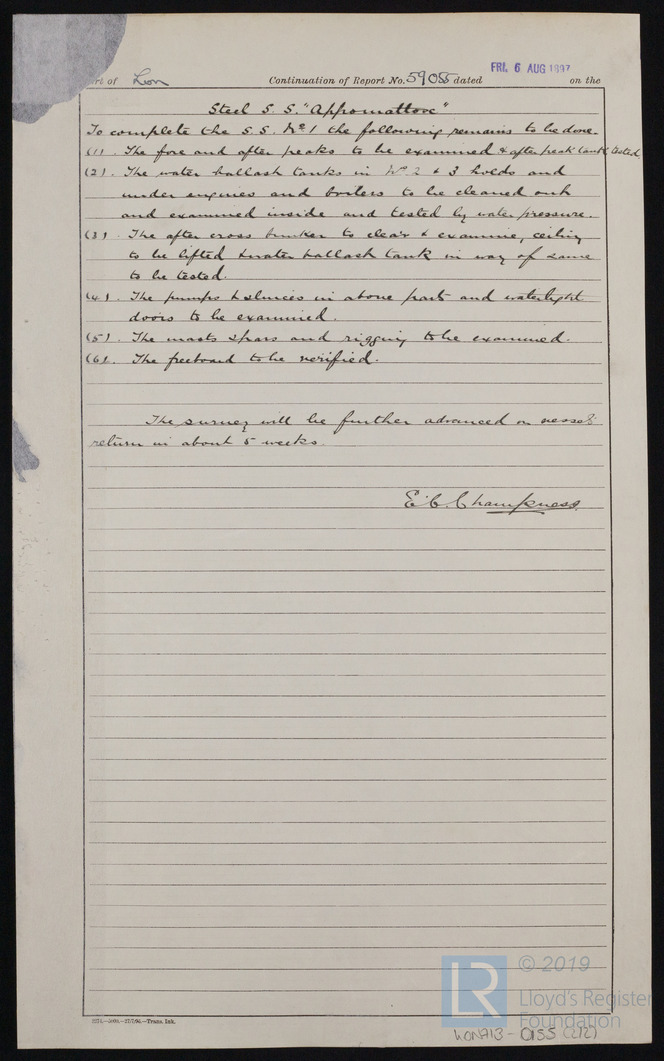 FRI. 6 AUG 1897
rt of Lon Continuation of Report No. 59055 dated on the
Steel S.S. "Appomattox"
To complete the S.S. No 1 the following remains to be done.
(1). The fore and after peaks to be examined & after peak tank tested
(2). The water ballast tanks in No 2 & 3 holds and
under engines and boilers to be cleaned out
and examined inside and tested by water pressure.
(3). The after cross bunker to clear & examine, ceiling
to be lifted & water ballast tank in way of same
to be tested.
(4). The pumps & sluices in above parts and watertight
doors to be examined.
(5). The masts spars and rigging to be examined.
(6). The freeboard to be verified.
The survey will be further advanced on vessel's
return in about 5 weeks.
E. C. Champness
© 2019
LR Lloyd's Register
Foundation
LON713-0155 (2/2)